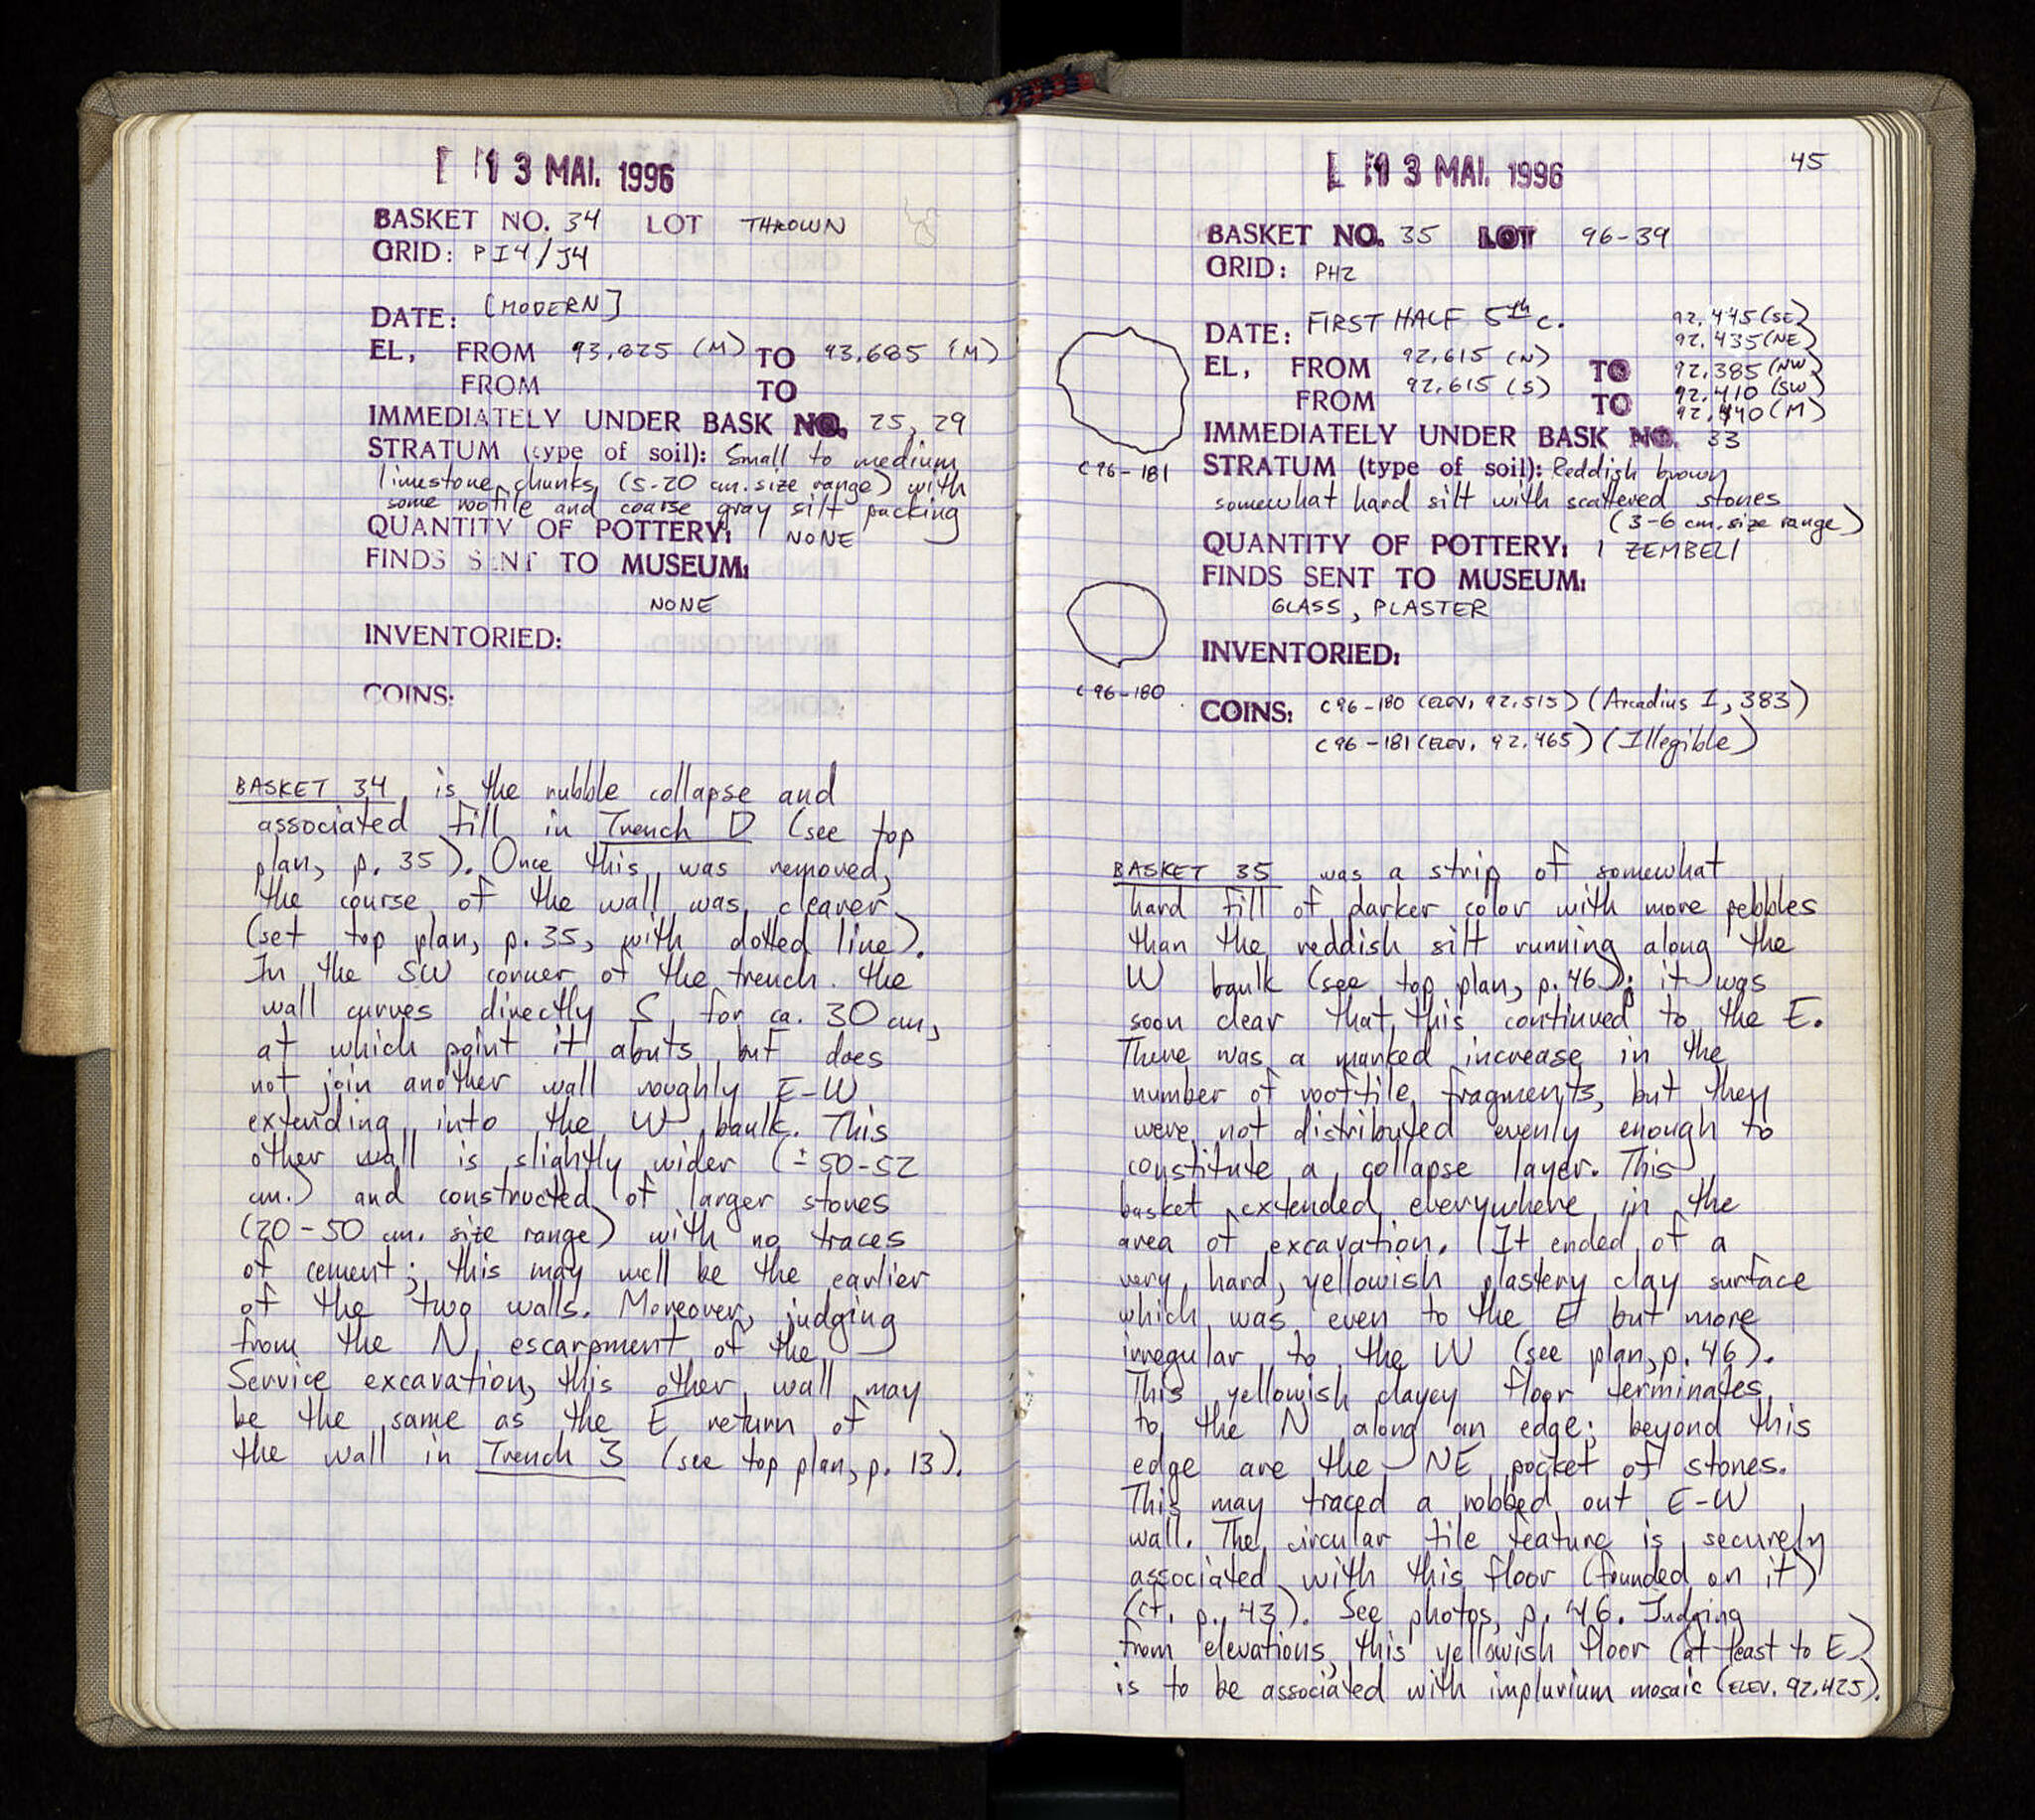 13 MAI. 1996
BASKET NO. 34 LOT THROWN
GRID: PI4/J4
DATE: [MODERN]
EL, FROM 93.825 (M) TO 93.685 (M)
FROM TO
IMMEDIATELY UNDER BASK NO. 25, 29
STRATUM (type of soil): Small to medium
limestone chunks (5-20 cm. size range) with
some rooftile and coarse gray silt packing
QUANTITY OF POTTERY: NONE
FINDS SENT TO MUSEUM:
NONE
INVENTORIED:
COINS:
BASKET 34 is the rubble collapse and
associated fill in Trench D (see top
plan, p. 35). Once this was removed,
the course of the wall was clearer
(set top plan, p. 35, with dotted line).
In the SW corner of the trench the
wall curves directly S for ca. 30 cm,
at which point it abuts but does
not join another wall roughly E-W
extending into the W baulk. This
other wall is slightly wider (± 50-52
cm.) and constructed of larger stones
(20-50 cm. size range) with no traces
of cement; this may well be the earlier
of the two walls. Moreover, judging
from the N escarpment of the
Service excavation, this other wall may
be the same as the E return of
the wall in Trench 3 (see top plan, p. 13).
45
13 MAI. 1996
BASKET NO. 35 LOT 96-39
GRID: PH2
DATE: FIRST HALF 5th c.
92.445 (SE)
92.435 (NE)
EL, FROM 92.615 (N) TO 92.385 (NW)
FROM 92.615 (S) TO 92.410 (SW)
92.440 (M)
IMMEDIATELY UNDER BASK NO. 33
C96-181
STRATUM (type of soil): Reddish brown
somewhat hard silt with scattered stones
(3-6 cm. size range)
QUANTITY OF POTTERY: 1 ZEMBELI
FINDS SENT TO MUSEUM:
GLASS, PLASTER
INVENTORIED:
C96-180
COINS: C96-180 (ELEV. 92.515) (Arcadius I, 383)
C96-181 (ELEV. 92.465) (Illegible)
BASKET 35 was a strip of somewhat
hard fill of darker color with more pebbles
than the reddish silt running along the
W baulk (see top plan, p. 46); it was
soon clear that this continued to the E.
There was a marked increase in the
number of rooftile fragments, but they
were not distributed evenly enough to
constitute a collapse layer. This
basket extended everywhere in the
area of excavation. It ended of a
very hard, yellowish plastery clay surface
which was even to the E but more
irregular to the W (see plan, p. 46).
This yellowish clayey floor terminates
to the N along an edge; beyond this
edge are the NE pocket of stones.
This may traced a robbed out E-W
wall. The circular tile feature is securely
associated with this floor (founded on it)
(cf. p. 43). See photos, p. 46. Judging
from elevations, this yellowish floor (at least to E)
is to be associated with impluvium mosaic (ELEV. 92.425).